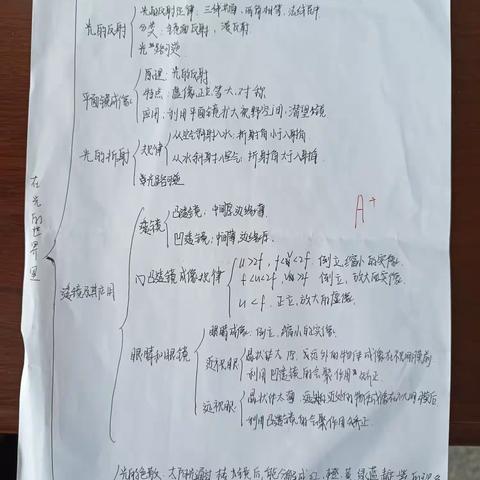 光的反射
光的反射定律：三线共面，两角相等，法线居中
分类：镜面反射，漫反射
光路可逆
平面镜成像
原理：光的反射
特点：虚像、正立、等大、对称
应用：利用平面镜扩大视野空间，潜望镜
光的折射
规律
从空气射入水：折射角小于入射角
从水射入空气：折射角大于入射角
光路可逆
在光的世界里
A+
透镜及其应用
透镜
凸透镜：中间厚边缘薄
凹透镜：中间薄边缘厚
凸透镜成像规律
u>2f，f<v<2f 倒立、缩小的实像
f<u<2f，v>2f 倒立、放大的实像
u<f 正立、放大的虚像
眼睛和眼镜
眼睛成像：倒立、缩小的实像
近视眼
晶状体太厚，成像在视网膜前
利用凹透镜的会聚作用矫正
远视眼
晶状体太薄 成像在视网膜后
利用凸透镜的会聚作用矫正
光的色散：太阳光通过棱镜后，能分解成红、橙、黄、绿、蓝